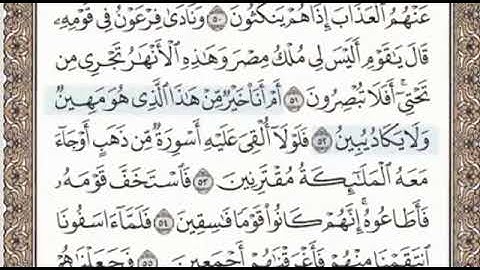 عَنْهُمُ ٱلْعَذَابَ إِذَا هُمْ يَنكُثُونَ ٥٠ وَنَادَىٰ فِرْعَوْنُ فِى قَوْمِهِۦ
قَالَ يَٰقَوْمِ أَلَيْسَ لِى مُلْكُ مِصْرَ وَهَٰذِهِ ٱلْأَنْهَٰرُ تَجْرِى مِن
تَحْتِىٓ ۖ أَفَلَا تُبْصِرُونَ ٥١ أَمْ أَنَا۠ خَيْرٌ مِّنْ هَٰذَا ٱلَّذِى هُوَ مَهِينٌ
وَلَا يَكَادُ يُبِينُ ٥٢ فَلَوْلَآ أُلْقِىَ عَلَيْهِ أَسْوِرَةٌ مِّن ذَهَبٍ أَوْ جَآءَ
مَعَهُ ٱلْمَلَٰٓئِكَةُ مُقْتَرِنِينَ ٥٣ فَٱسْتَخَفَّ قَوْمَهُۥ
فَأَطَاعُوهُ ۚ إِنَّهُمْ كَانُوا۟ قَوْمًا فَٰسِقِينَ ٥٤ فَلَمَّآ ءَاسَفُونَا
ٱنتَقَمْنَا مِنْهُمْ فَأَغْرَقْنَٰهُمْ أَجْمَعِينَ ٥٥ فَجَعَلْنَٰهُمْ